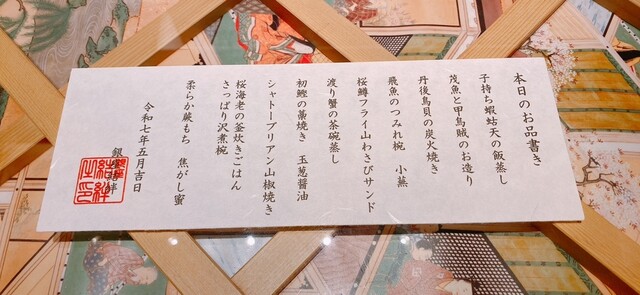 本日のお品書き
子持ち蝦蛄天の飯蒸し
茂魚と甲烏賊のお造り
丹後鳥貝の炭火焼き
飛魚のつみれ椀　小蕪
桜鱒フライ山わさびサンド
渡り蟹の茶碗蒸し
初鰹の藁焼き　玉葱醤油
シャトーブリアン山椒焼き
桜海老の釜炊きごはん
さっぱり沢煮椀
柔らか蕨もち　焦がし蜜
令和七年五月吉日